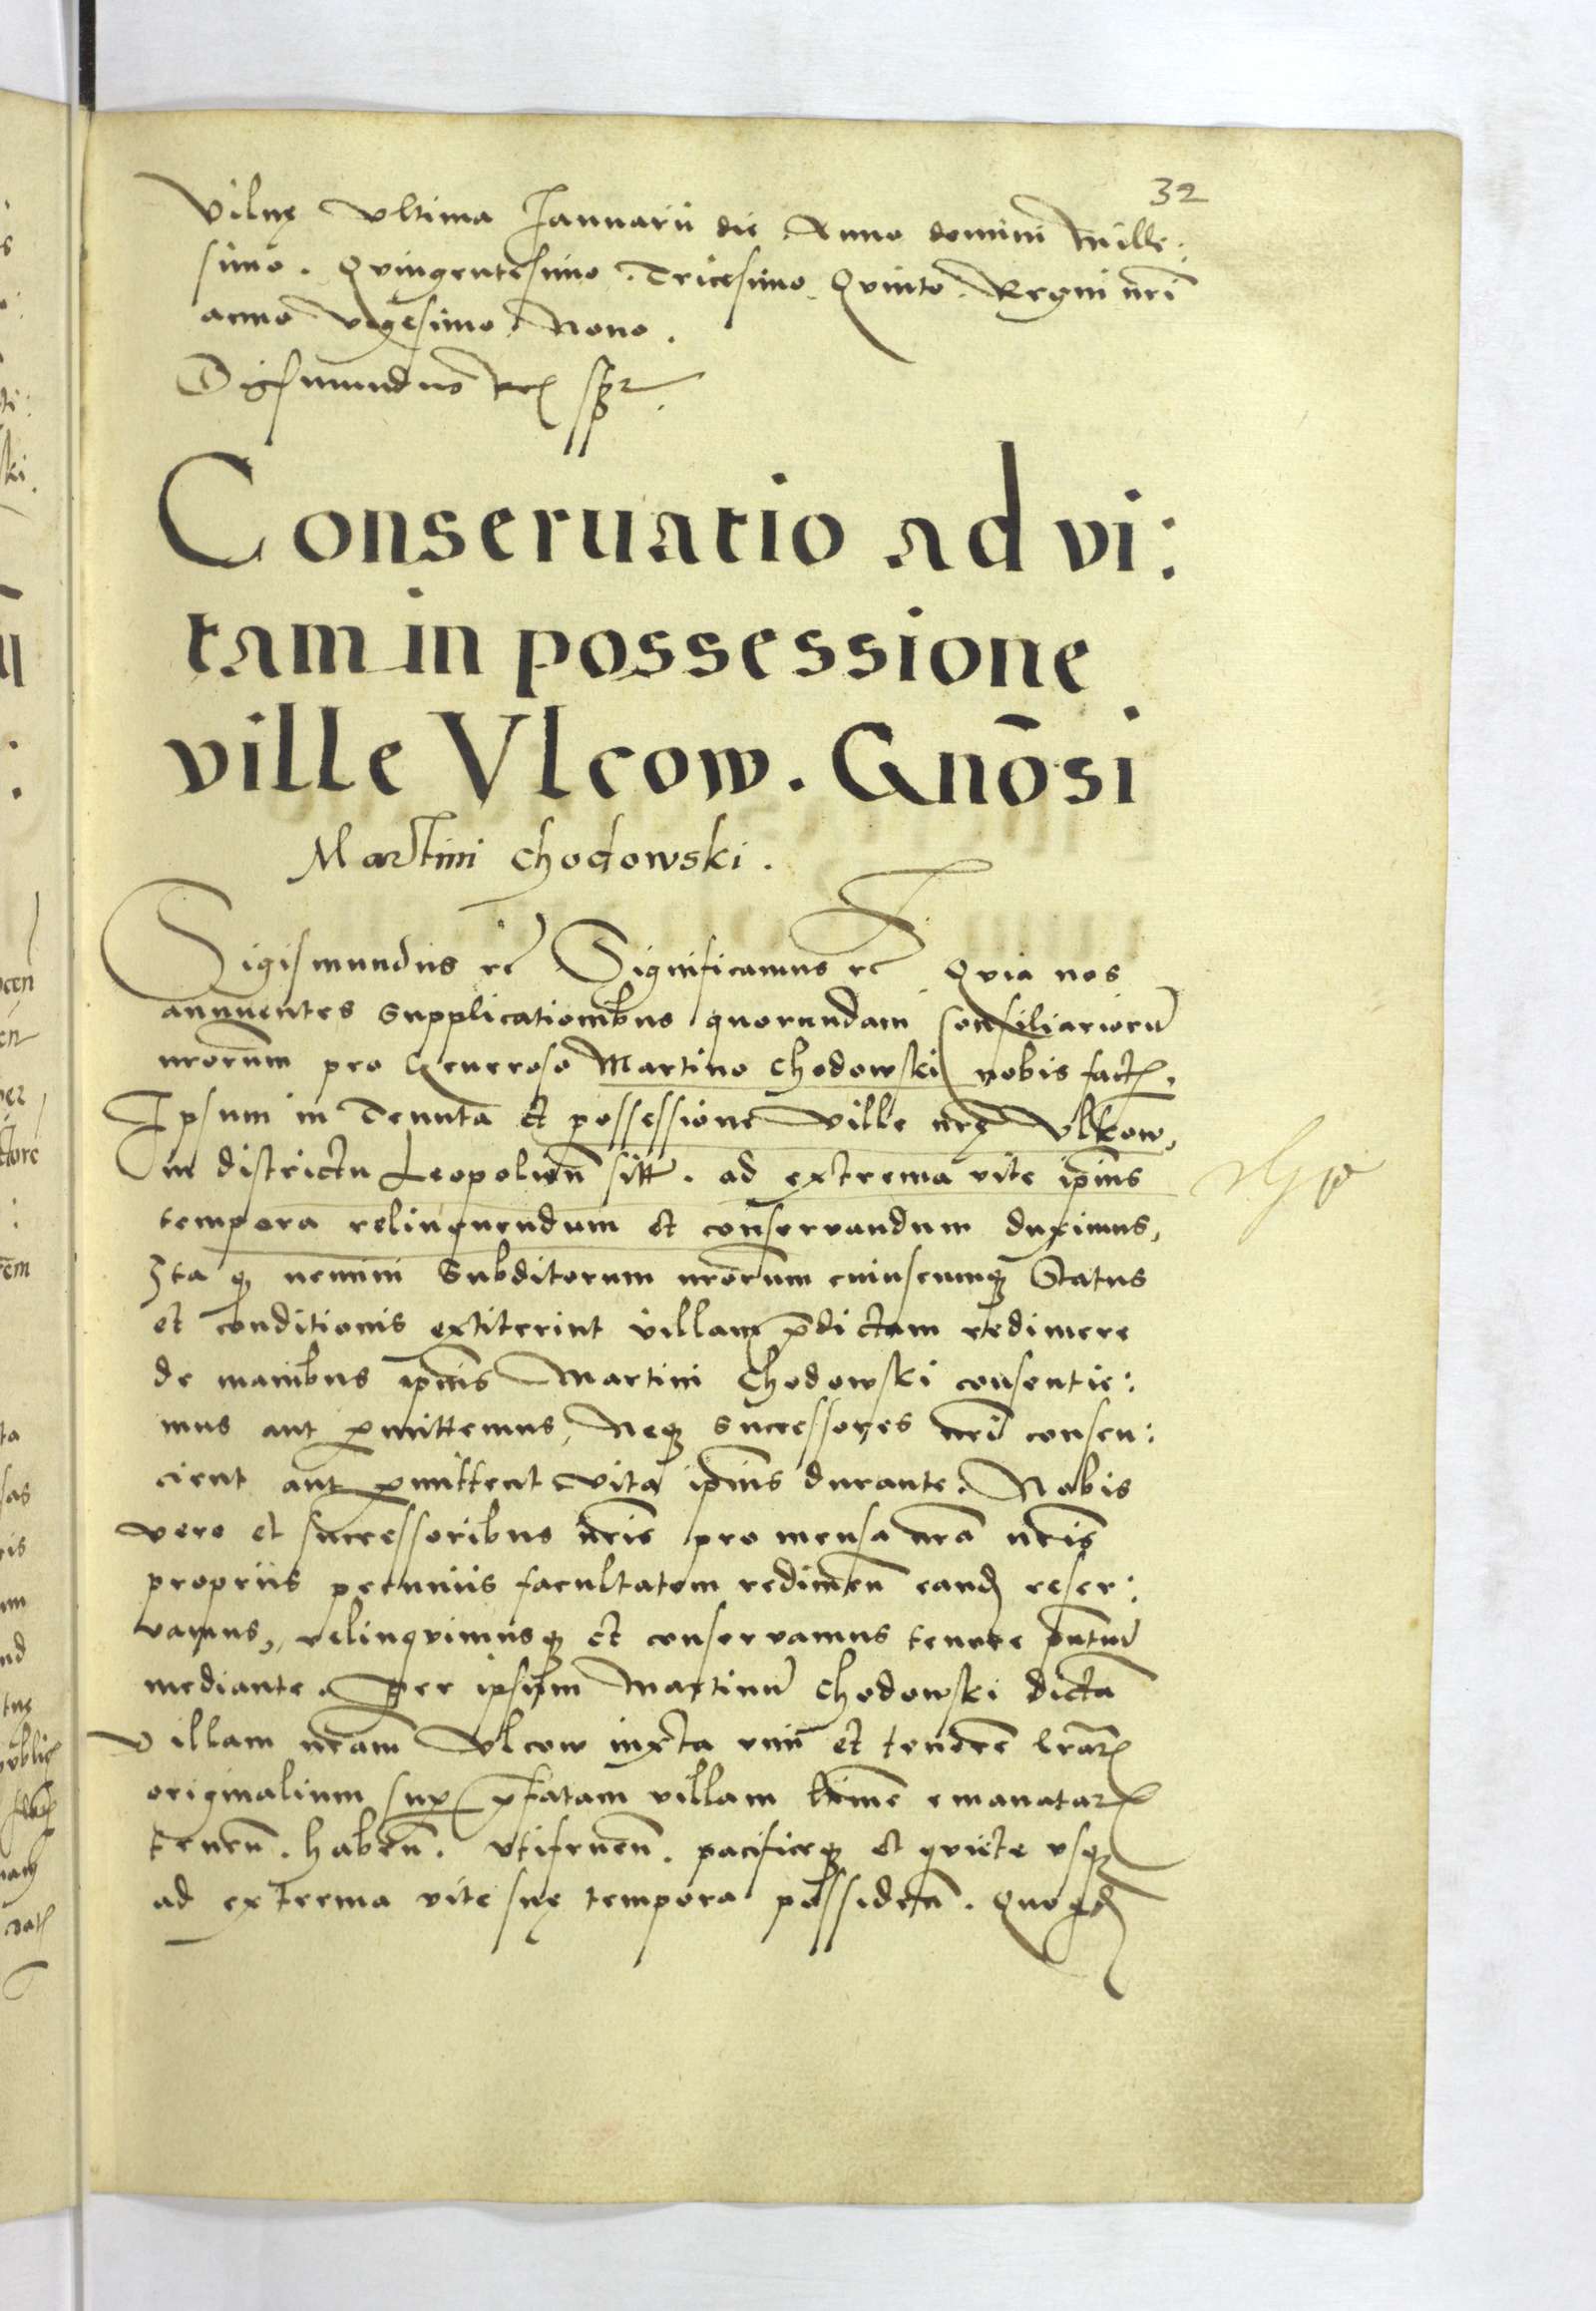 32
Vilnę Vltima Januarii die Anno domini Mille:
simo. Qvingentesimo. Tricesimo. Qvinto. Regni nrī
anno vigesimo Nono.
Sigismundus Rex
Conseruatio ad vi:
tam in possessione
ville Vlcow. Gnōsi
Martini Chodowski.
Sigismundus rc̄ Significamus rc̄ Qvia nos
annuentes supplicationibus quorundam Consiliariorū
nrorum pro Generoso Martino Chodowski nobis factꝭ.
Ipsum in Tenuta et possessione ville nrę Vlkow,
in districtu Leopolień sitt. ad extrema vite ipius
tempora relinquendum et conservandum duximus,
Ita qꝫ nemini Subditorum nrōrum cuiuscumqꝫ Status
et conditionis extiterint villam p̄dictam redimere
de manibus ipius Martini Chodowski consentie:
mus aut ꝑmittemus, Neqꝫ successores nrī consen:
cient aut ꝑmittent vita ipius durante. Nobis
vero et successoribus nrīs pro mensa nrā nrīs
propriis pecuniis facultatem redimeń eandꝫ reser:
vamus, relinqvimusqꝫ et conservamus tenore pn̄tiū
mediante. Per ipsum Martinū Chodowski dictā
villam nrām Vlcow iuxta vim et tenorē lrāꝝ
originalium suꝑ p̄fatam villam emanataꝝ
teneń. habeń. vtifrueń. pacificeqꝫ et qviete vsqꝫ
ad extrema vite suę tempora possideń.